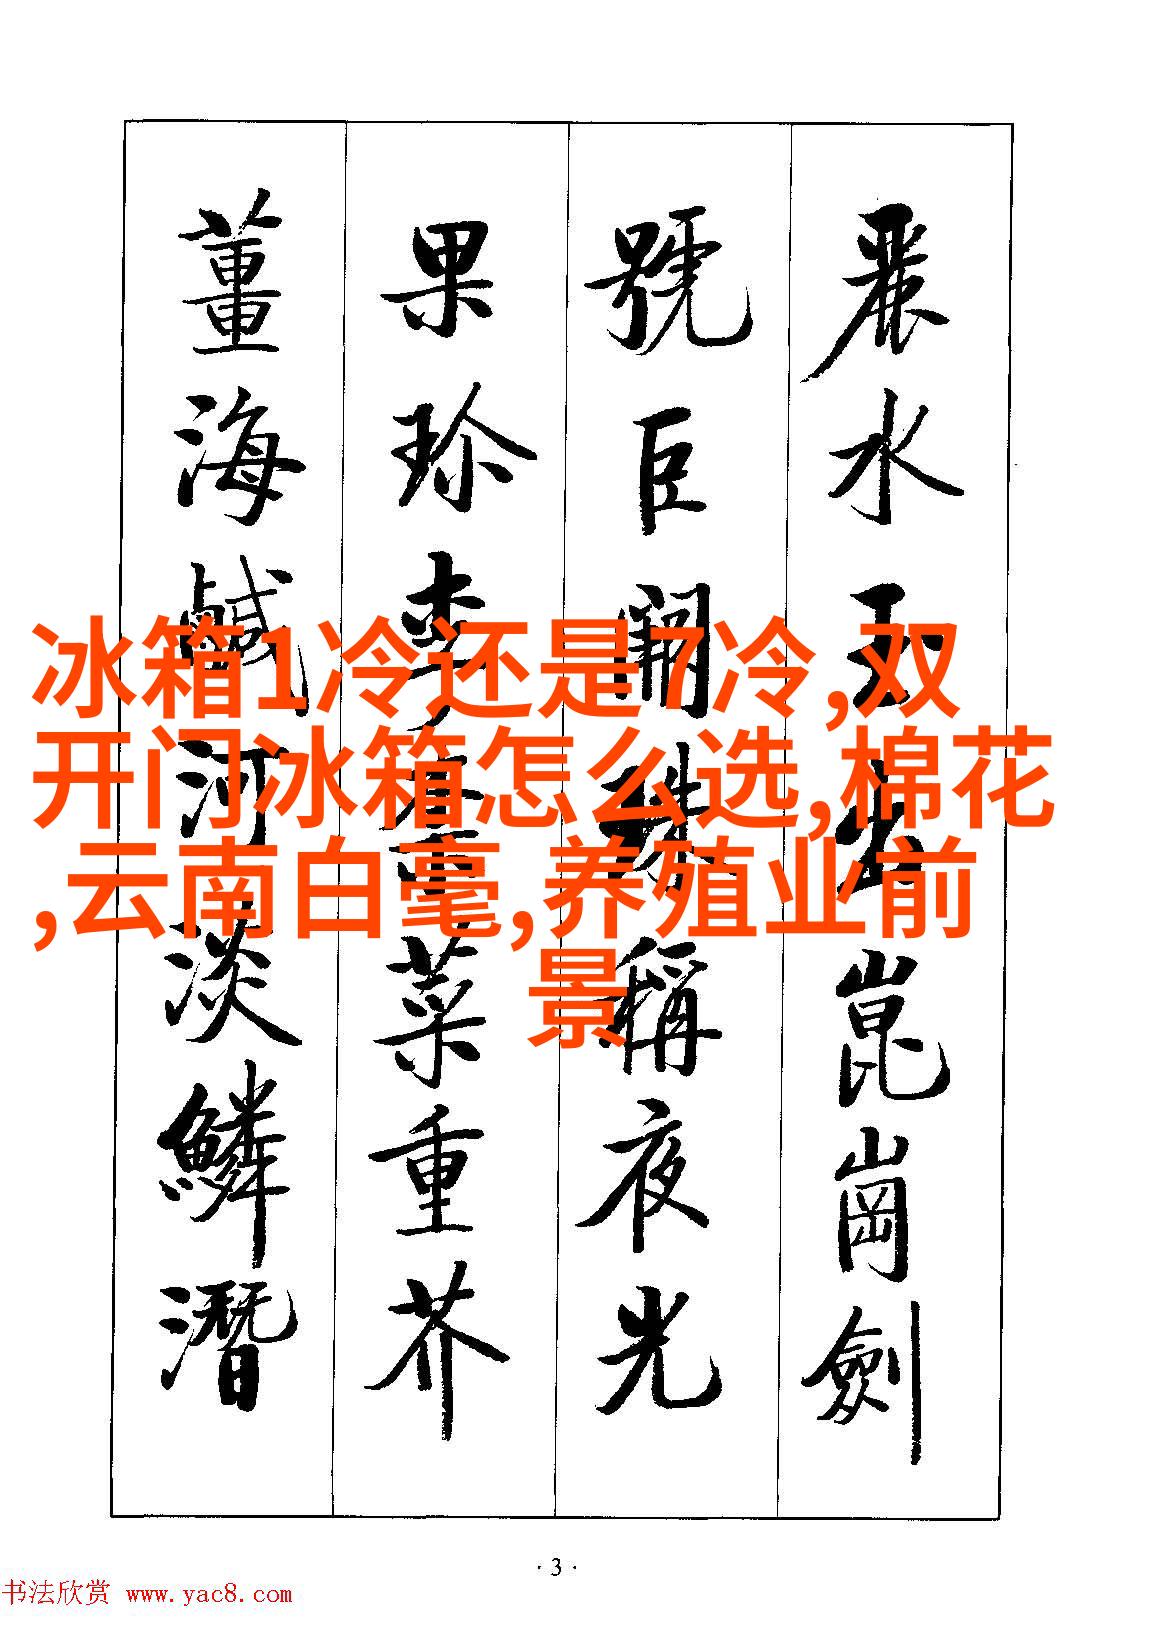 麗水玉出崑崗劍
號巨闕珠稱夜光
果珍李柰菜重芥
薑海鹹河淡鱗潛
冰箱1冷还是7冷,双
开门冰箱怎么选,棉花
,云南白毫,养殖业前
景
· 3 ·
书法欣赏 www.yac8.com